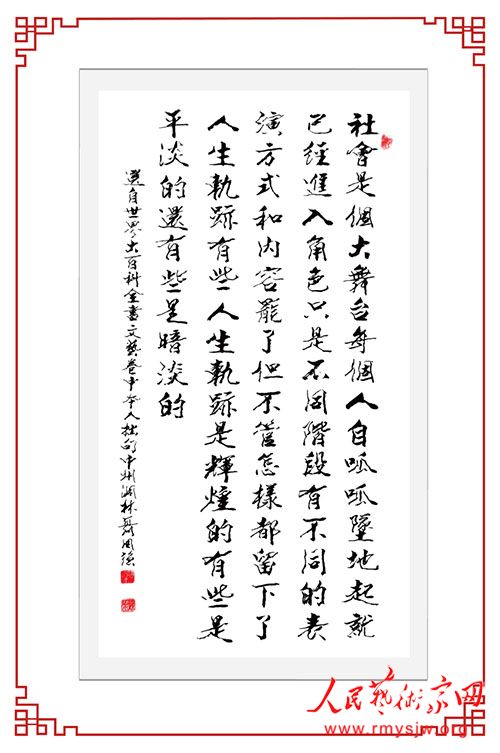 社會是個大舞台每個人自呱呱墜地起就
已經進入角色只是不同階段有不同的表
演方式和内容罷了但不管怎樣都留下了
人生軌跡有些人生軌跡是輝煌的有些是
平淡的還有些是暗淡的
選自世界大百科全書文藝卷中本人拙句中州澗林聶周強
人民藝術家网
www.rmysjw.org